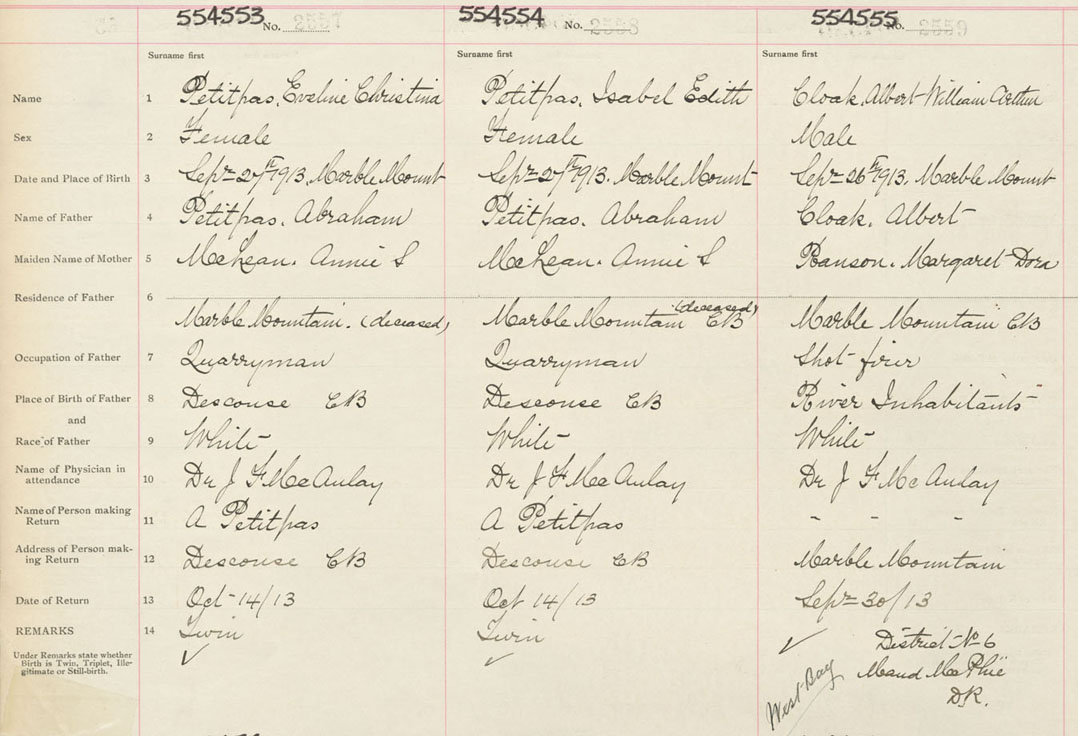 554553 No. 2557 554554 No. 2558 554555 No. 2559
Surname first Surname first Surname first
Name 1 Petitpas, Eveline Christina Petitpas, Isabel Edith Cloak, Albert William Arthur
Sex 2 Female Female Male
Date and Place of Birth 3 Sept 27th 1913, Marble Mount Sept 27th 1913. Marble Mount Sept 26th 1913, Marble Mount
Name of Father 4 Petitpas, Abraham Petitpas, Abraham Cloak, Albert
Maiden Name of Mother 5 McLean. Annie S McLean. Annie S Ranson. Margaret Dora
Residence of Father 6
Marble Mountain. (deceased) Marble Mountain CB (deceased) Marble Mountain CB
Occupation of Father 7 Quarryman Quarryman Shot-firer
Place of Birth of Father 8 Descouse CB Descouse CB River Inhabitants
and
Race of Father 9 White White White
Name of Physician in attendance 10 Dr J F McAulay Dr J F McAulay Dr J F McAulay
Name of Person making Return 11 A Petitpas A Petitpas - - -
Address of Person mak-
ing Return 12 Descouse CB Descouse CB Marble Mountain
Date of Return 13 Oct-14/13 Oct 14/13 Sept 30/13
REMARKS 14 Twin Twin
Under Remarks state whether
Birth is Twin, Triplet, Ille-
gitimate or Still-birth.
✓ ✓ ✓ District No 6
Maud McPhie
D.R.
West Bay